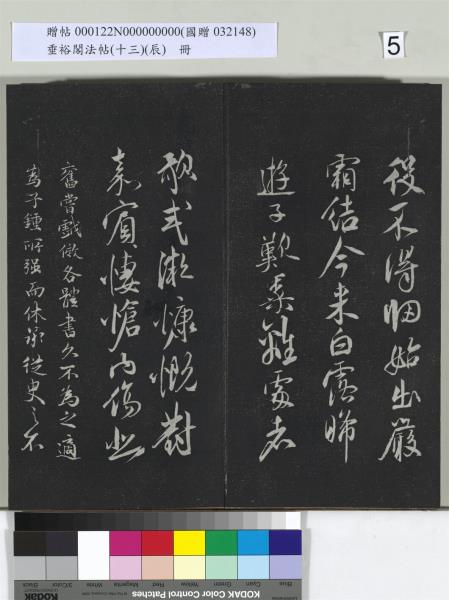 贈帖 000122N000000000(國贈 032148)
垂裕閣法帖(十三)(辰) 冊
5
役不得歸始出嚴
霜結今来白露晞
遊子歎黍離處者
歌式微慷慨對
嘉賓悽愴內傷悲
舊嘗戲倣各體書久不為之適
為子鍾所强而休承從臾之不
KODAK Color Control Patches
Blue Cyan Green Yellow Red Magenta White 3/Color Black